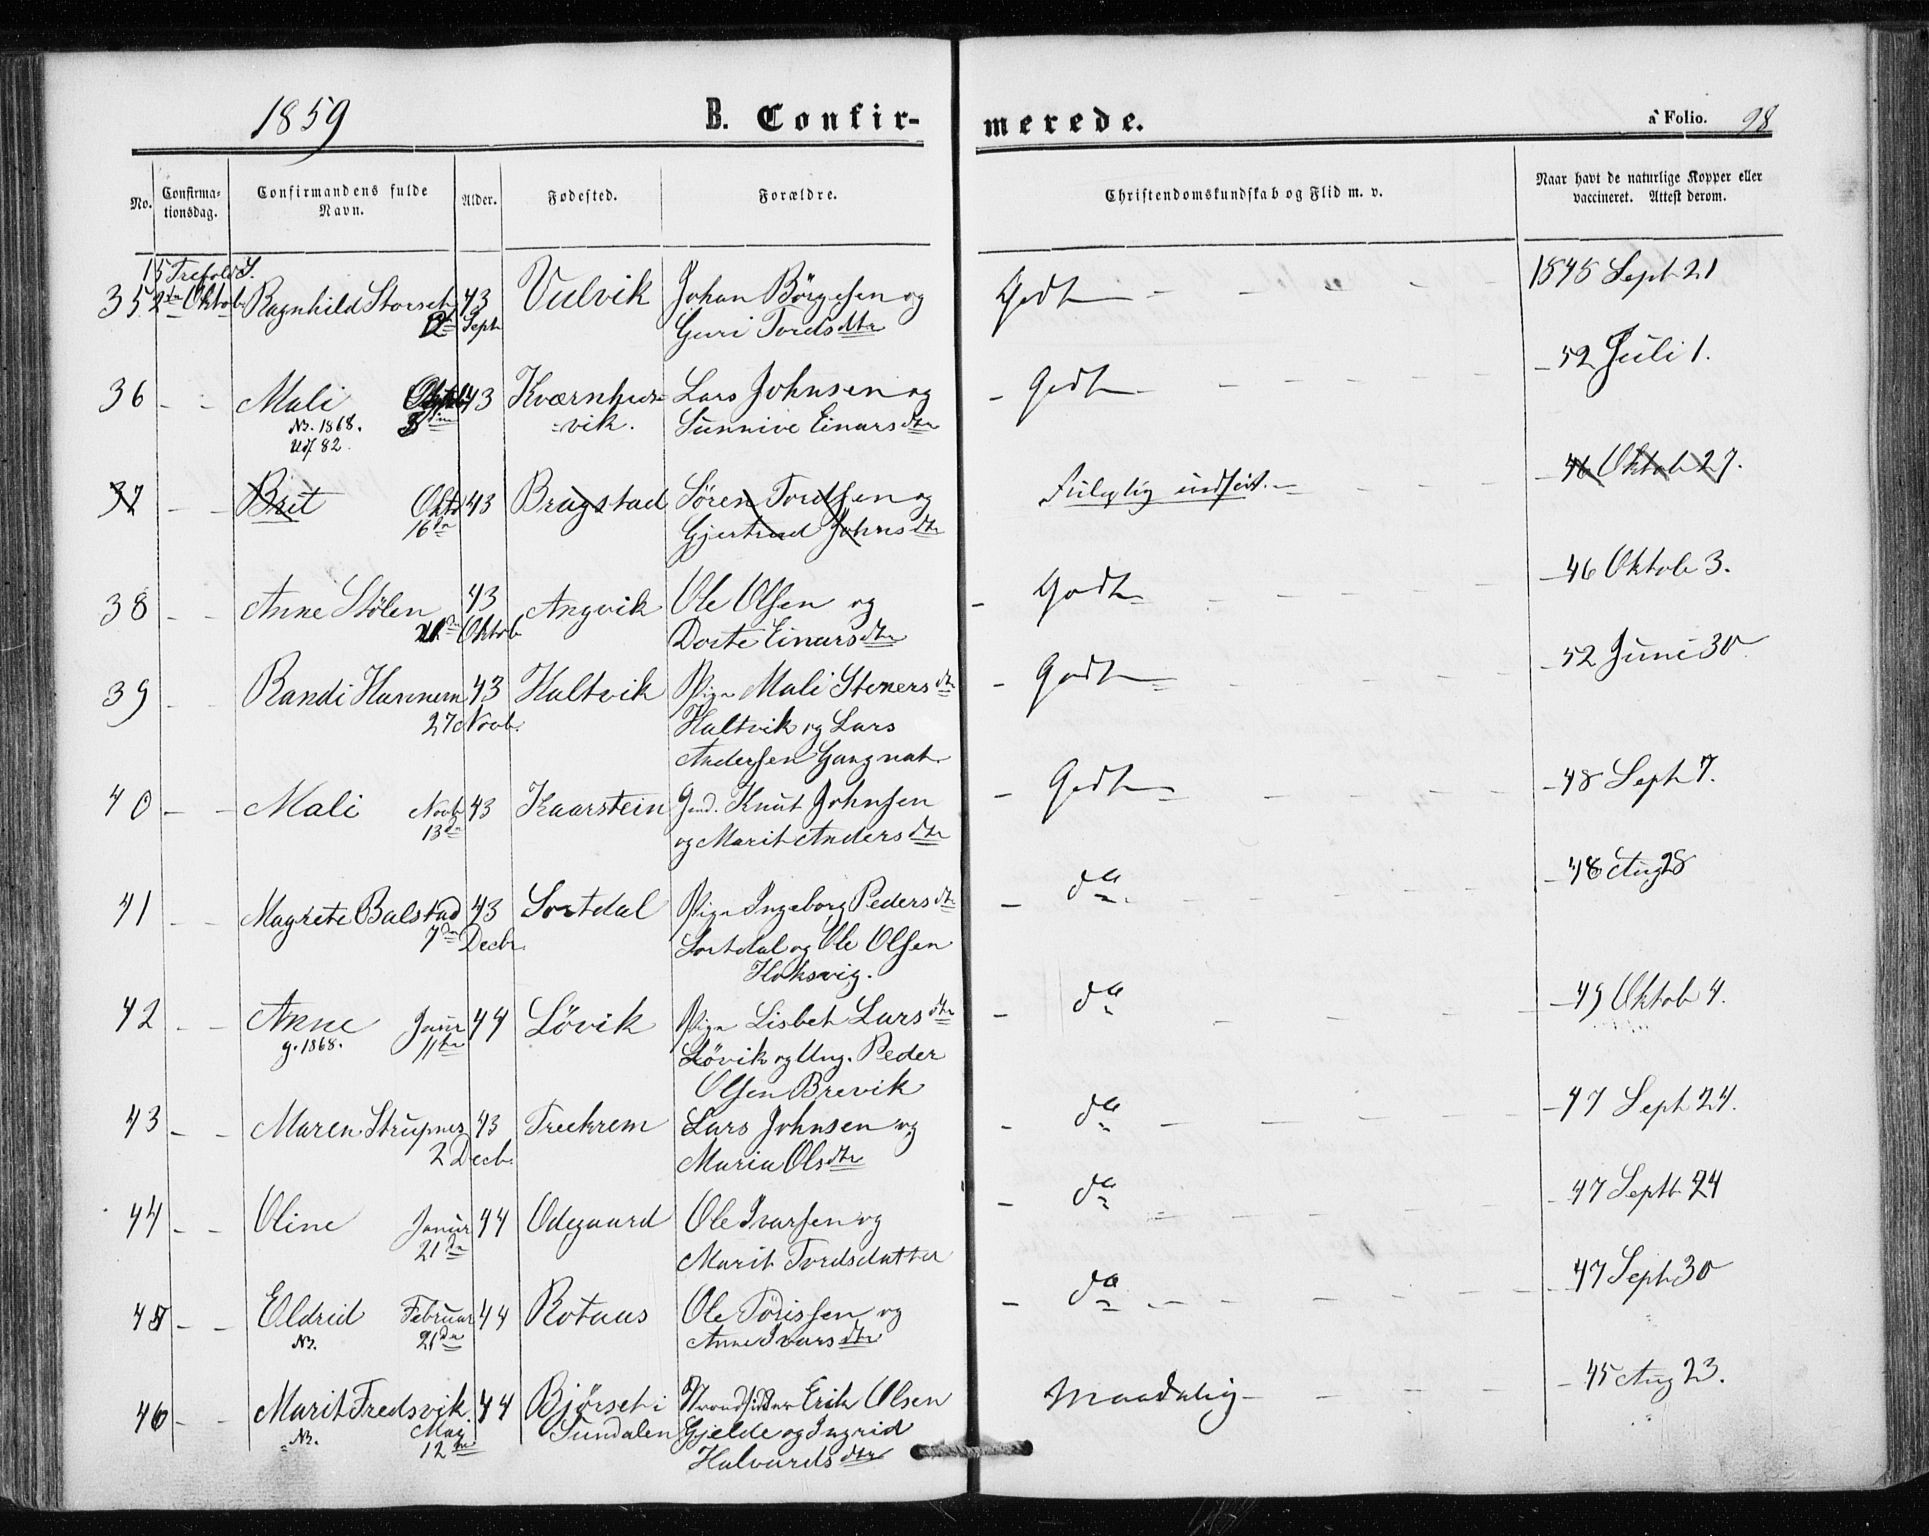 1859 B. Confir- merede. a Folio. 98
No. Confirma-tionsdag. Confirmandens fulde Navn. Alder. Fødested. Forældre. Christendomskundskab og Flid m. v. Naar havt de naturlige Kopper eller vaccineret. Attest derom.
15 Trefold. S.
35. 2den Oktob Ragnhild Storset 43 Vulvik Johan Börgesen og Godt - - - - 1845 Sept 21
12te Sept Guri Tordsdtr
36 - - Mali 43 Kværnhus= Lars Johnsen og - Godt - - - - 52 Juli 1.
NB. 1868. =vik. Sunnive Einarsdtr
Udf 82.
37 - - Brit Oktb 43 Bragstad Sören Tordsen og Fuleylig indført. - - - - 46 Oktob 27.
16de Gjertrud Johnsdtr
38 - - Anne Stölen 43 Angvik Ole Olsen og - Godt - - - - 46 Oktob 3.
Oktob Dorte Einarsdtr
39 - - Randi Hannem 43 Haltvik Pige Mali Stenersdtr - Godt - - - - 52 Juni 30
27 Novb. Haltvik og Lars
Andersen Gangnat
40 - - Mali Novb 43 Kaarstein Gmd. Knut Johnsen - Godt - - - - 48 Sept 7.
13de og Marit Andersdtr
41 - - Magrete Balstad 43 Sortdal Pige Ingeborg Pedersdtr - do. - - - - 48 Aug 28
7de Decb. Sortdal og Ole Olsen
Hoksvig.
42 - - Anne Janr 44 Lövik Pige Lisbet Larsdtr - do - - - - 49 Oktob 4.
g. 1868. 11te Lövik og Ung. Peder
Olsen Brevik
43 - - Maren Strupnes 43 Treekrem Lars Johnsen og - do - - - - 47 Sept 24.
2 Decb. Maria Olsdtr
44 - - Oline Janur 44 Odegaard Ole Ivarsen og - do - - - - 47 Septb 24
21de Marit Tordsdatter
45 - - Eldrid Februar 44 Rotaas Ole Törissen og - do - - - - 47 Sept 30
NB. 21de Anne Ivarsdtr
46 - - Marit Fredsvik 44 Björset i Strandsidder Erik Olsen Maadelig - - - - 45 Aug 23.
NB. Mag 12te Sundalen Gjelde og Ingrid
Halvardsdtr